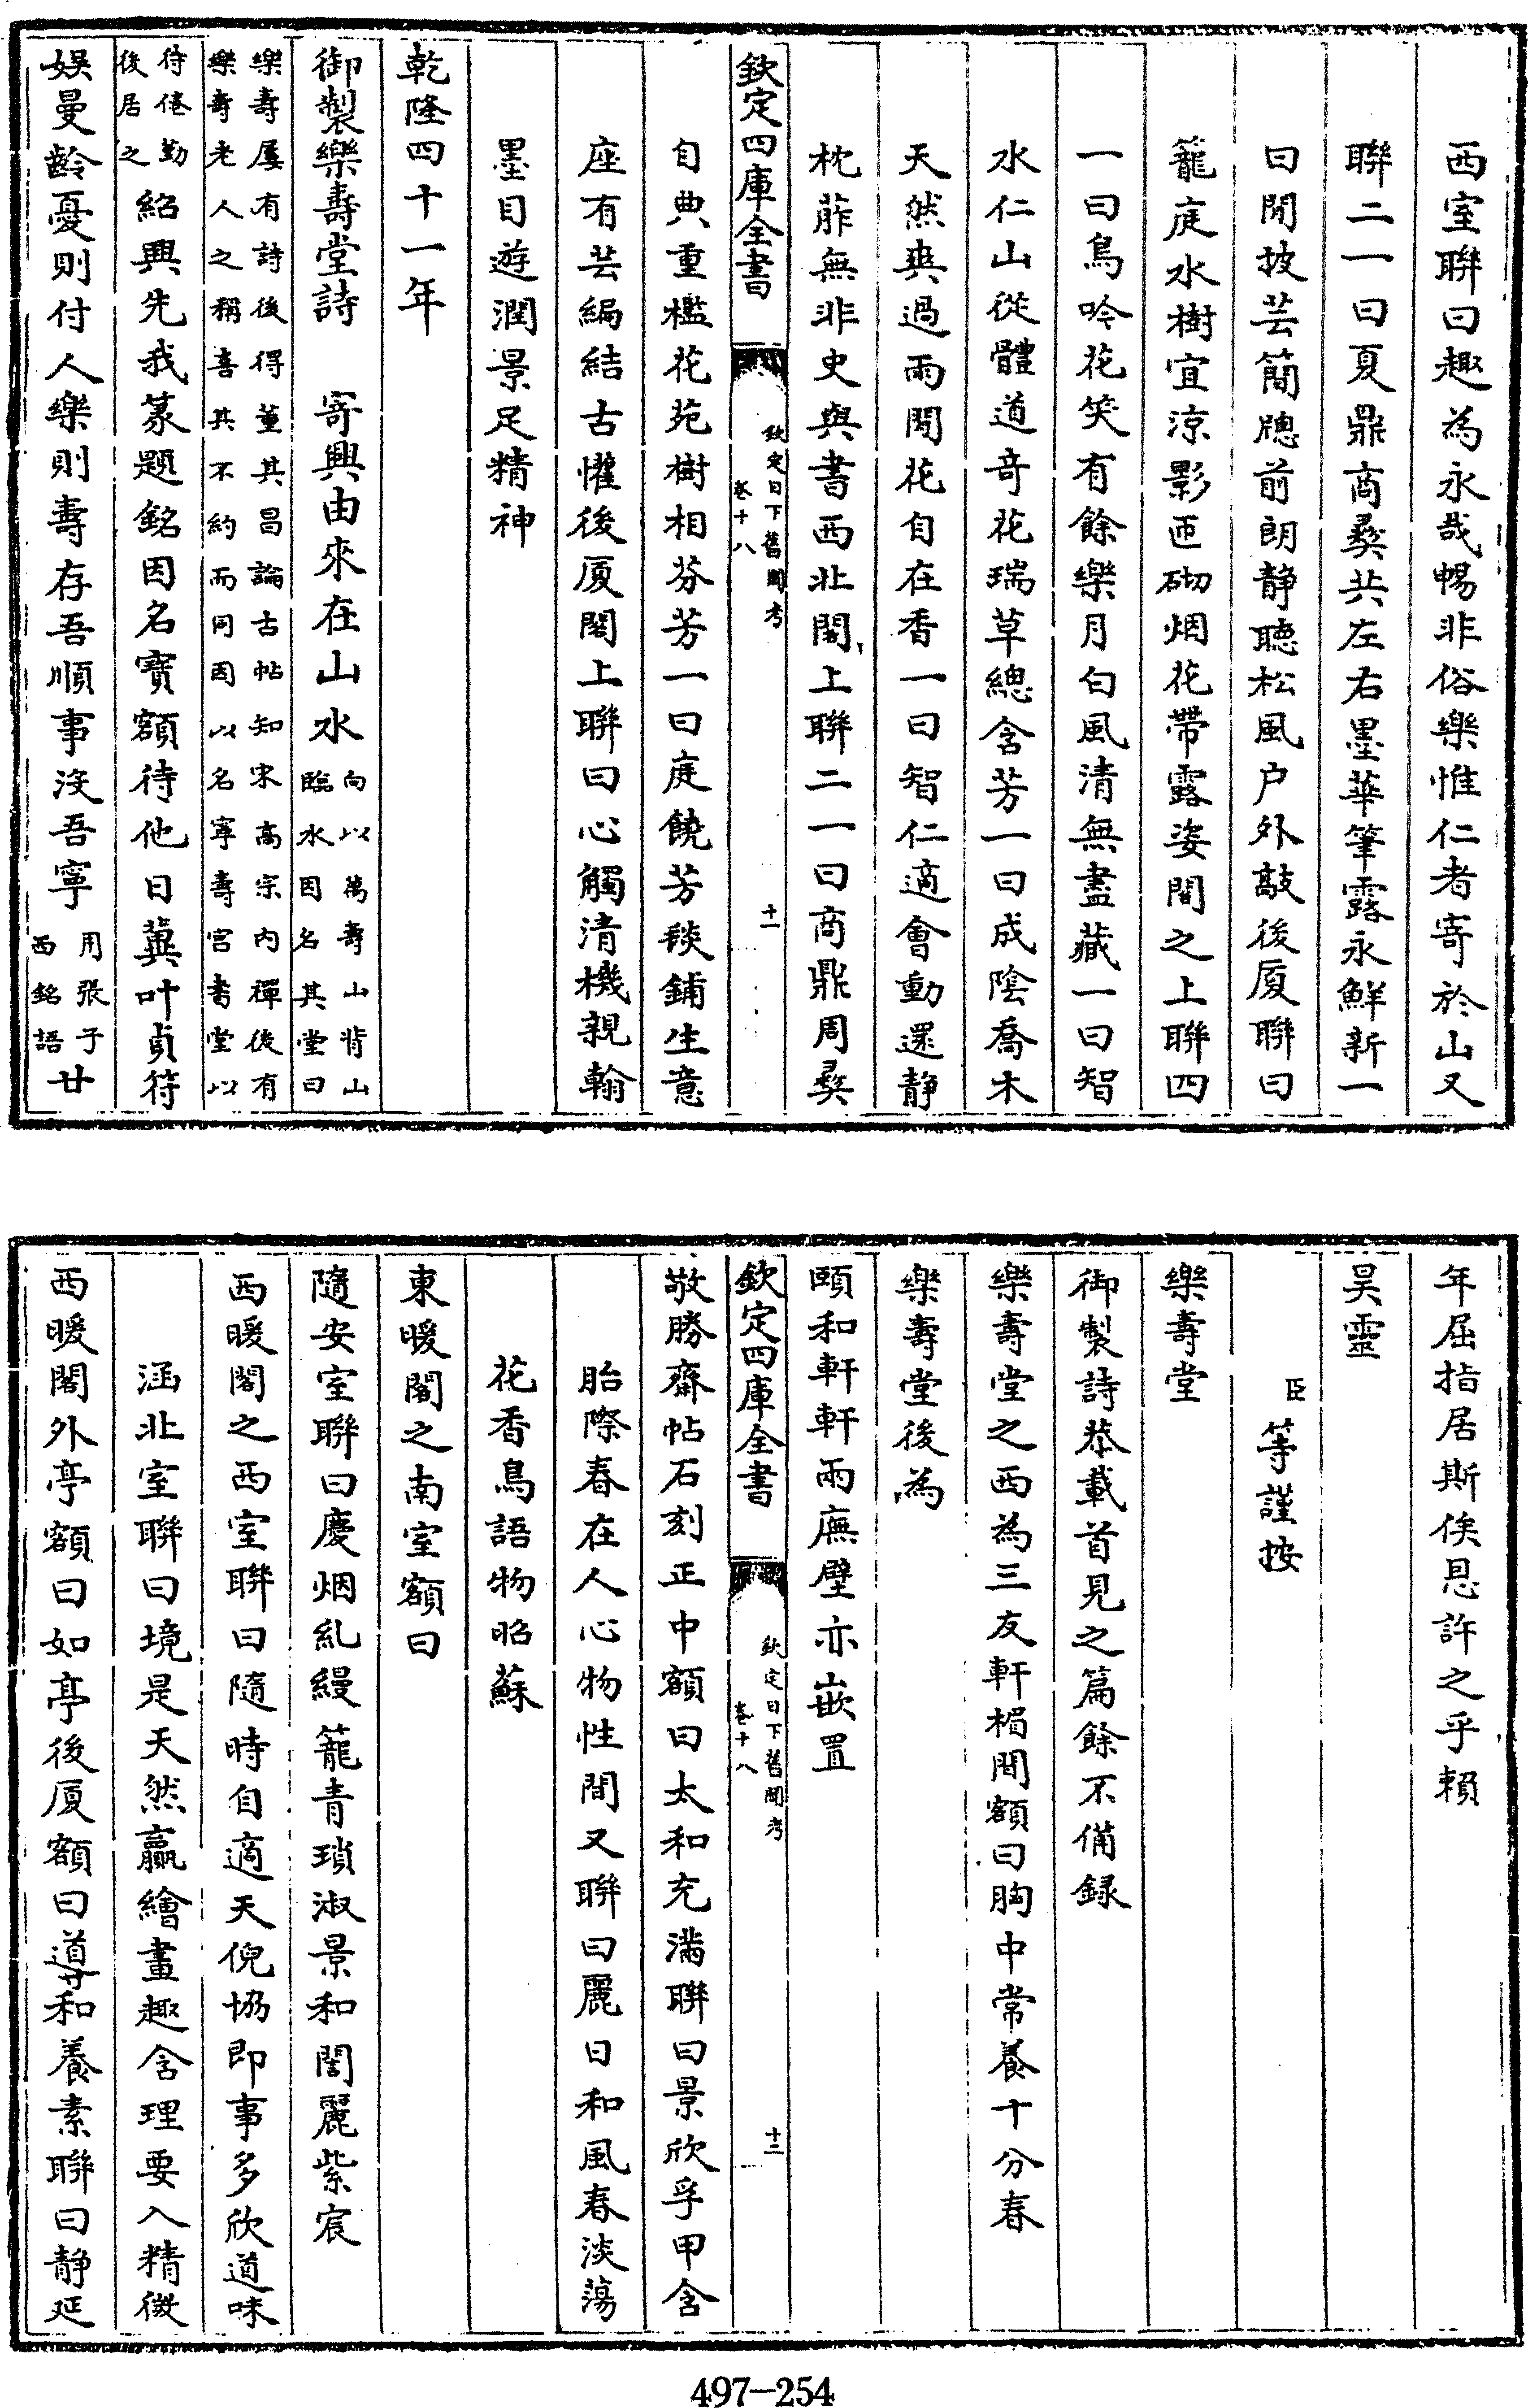 西室聯曰趣為永哉暢非俗樂惟仁者寄於山又
聯二一曰夏鼎商彝共左右墨華筆露永鮮新一
曰閒披芸簡牕前朗静聽松風户外敲後厦聯曰
籠庭水樹宜涼影匝砌烟花帶露姿閣之上聯四
一曰鳥吟花笑有餘樂月白風清無盡藏一曰智
水仁山從體道竒花瑞草總含芳一曰成陰喬木
天然爽過雨閒花自在香一曰智仁適會動還静
枕葄無非史與書西北閣上聯二一曰商鼎周彝
欽定四庫全書
欽定日下舊聞考
卷十八
十一
自典重檻花苑樹相芬芳一曰庭饒芳毯鋪生意
座有芸編結古懽後厦閣上聯曰心觸清機親翰
墨目遊潤景足精神
乾隆四十一年
御製樂壽堂詩 寄興由來在山水向以萬壽山背山
臨水因名其堂曰
樂壽屢有詩後得董其昌論古帖知宋高宗内禪後有
樂壽老人之稱喜其不約而同因以名寧壽宫書堂以
待倦勤
後居之紹興先我篆題銘因名實額待他日冀叶貞符
娛曼齡憂則付人樂則壽存吾順事没吾寧用張子
西銘語廿
年屈指居斯俟恩許之乎賴
昊靈
臣等謹按
樂壽堂
御製詩恭載首見之篇餘不備録
樂壽堂之西為三友軒楣間額曰胸中常養十分春
樂壽堂後為
頤和軒軒兩廡壁亦嵌置
欽定四庫全書
欽定日下舊聞考
卷十八
十二
敬勝齋帖石刻正中額曰太和充滿聯曰景欣孚甲含
胎際春在人心物性間又聯曰麗日和風春淡蕩
花香鳥語物昭蘇
東暖閣之南室額曰
隨安室聯曰慶烟糺縵籠青瑣淑景和闓麗紫宸
西暖閣之西室聯曰隨時自適天倪協即事多欣道味
涵北室聯曰境是天然贏繪畫趣含理要入精微
西暖閣外亭額曰如亭後厦額曰導和養素聯曰静延
497-254